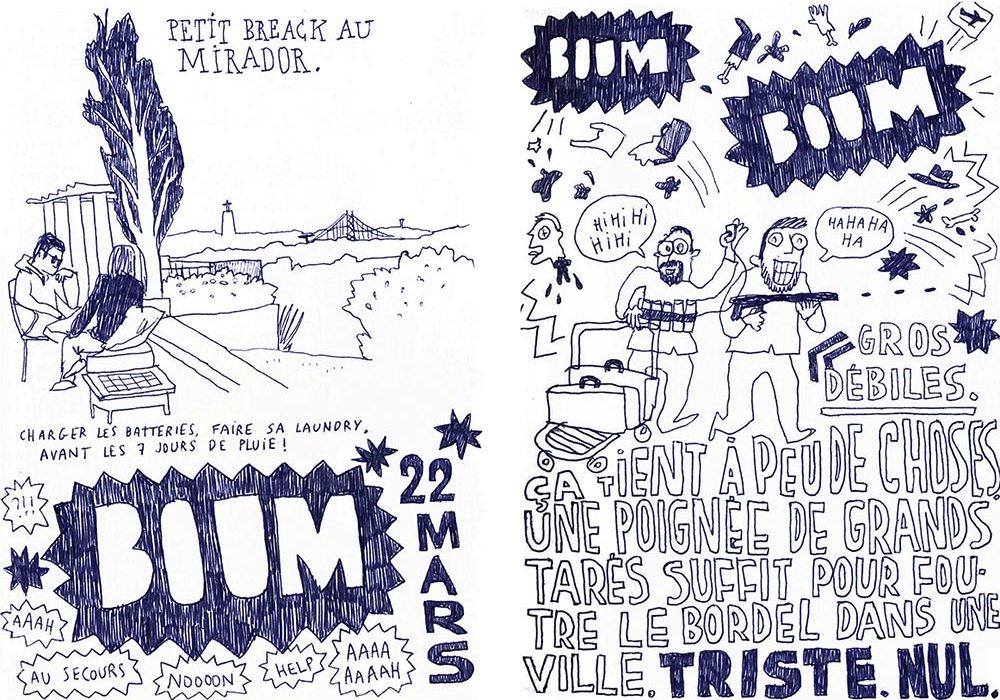 PETIT BREACK AU
MIRADOR.
CHARGER LES BATTERIES, FAIRE SA LAUNDRY,
AVANT LES 7 JOURS DE PLUIE !
22
MARS
BOUM
?!!
AAAH
AU SECOURS
NOOOON
HELP
AAAA
AAAAH
BOUM
BOUM
HiHiHi
HiHi
HAHAHA
HA
GROS
DÉBILES.
ÇA TiENT À PEU DE CHOSES,
UNE POIGNÉE DE GRANDS
TARÉS SUFFIT POUR FOU-
TRE LE BORDEL DANS UNE
VILLE. TRISTE. NUL.